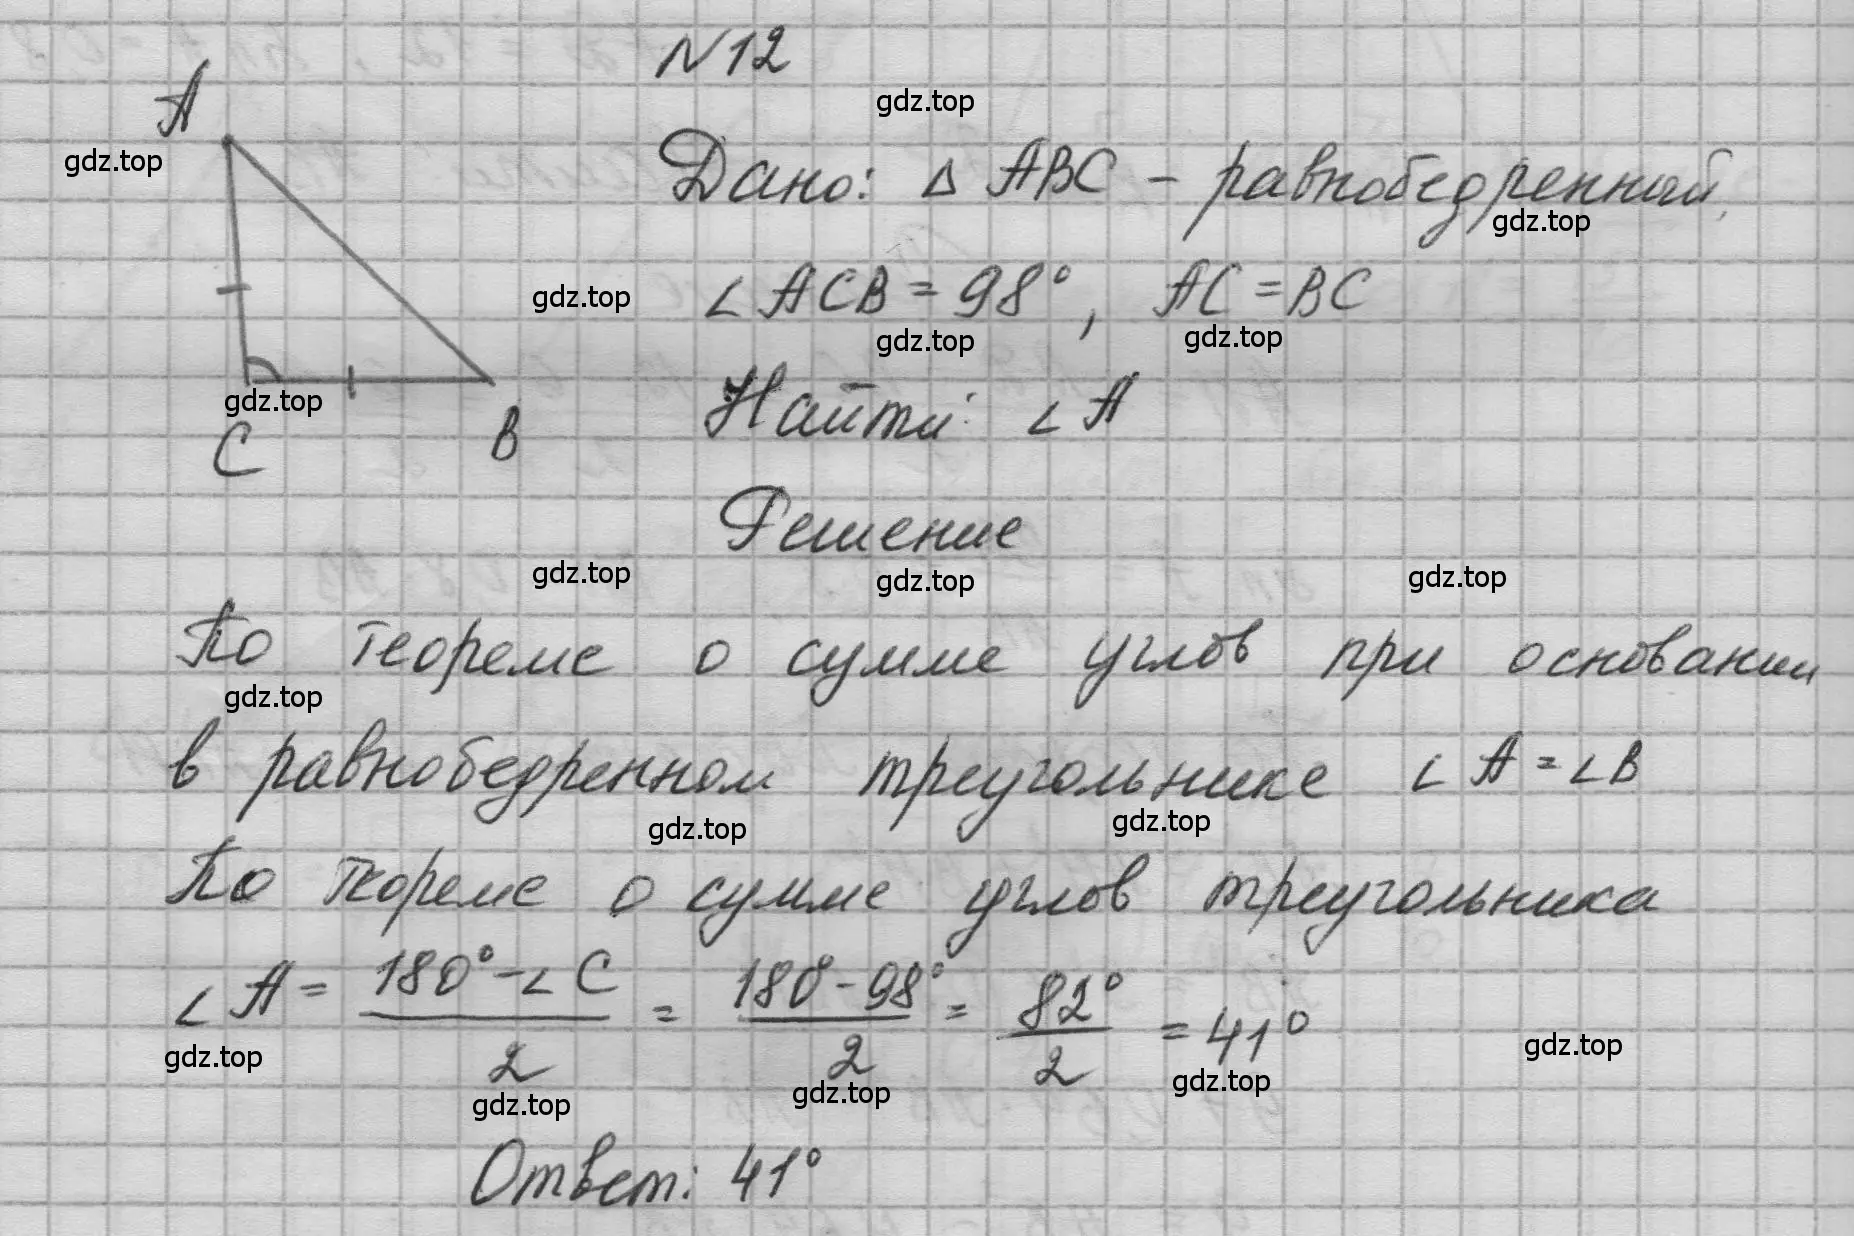 N 12
gdz.top
A
gdz.top
Дано: △ ABC - равнобедренный,
gdz.top
∠ ACB = 98°, AC = BC
gdz.top
gdz.top
gdz.top
Найти: ∠ A
gdz.top
C
B
Решение
gdz.top
gdz.top
gdz.top
По теореме о сумме углов при основании
gdz.top
в равнобедренном треугольнике ∠ A = ∠ B
gdz.top
gdz.top
По теореме о сумме углов треугольника
∠ A = (180° - ∠ C)/2 = (180° - 98°)/2 = 82°/2 = 41°
gdz.top
gdz.top
gdz.top
gdz.top
gdz.top
Ответ: 41°